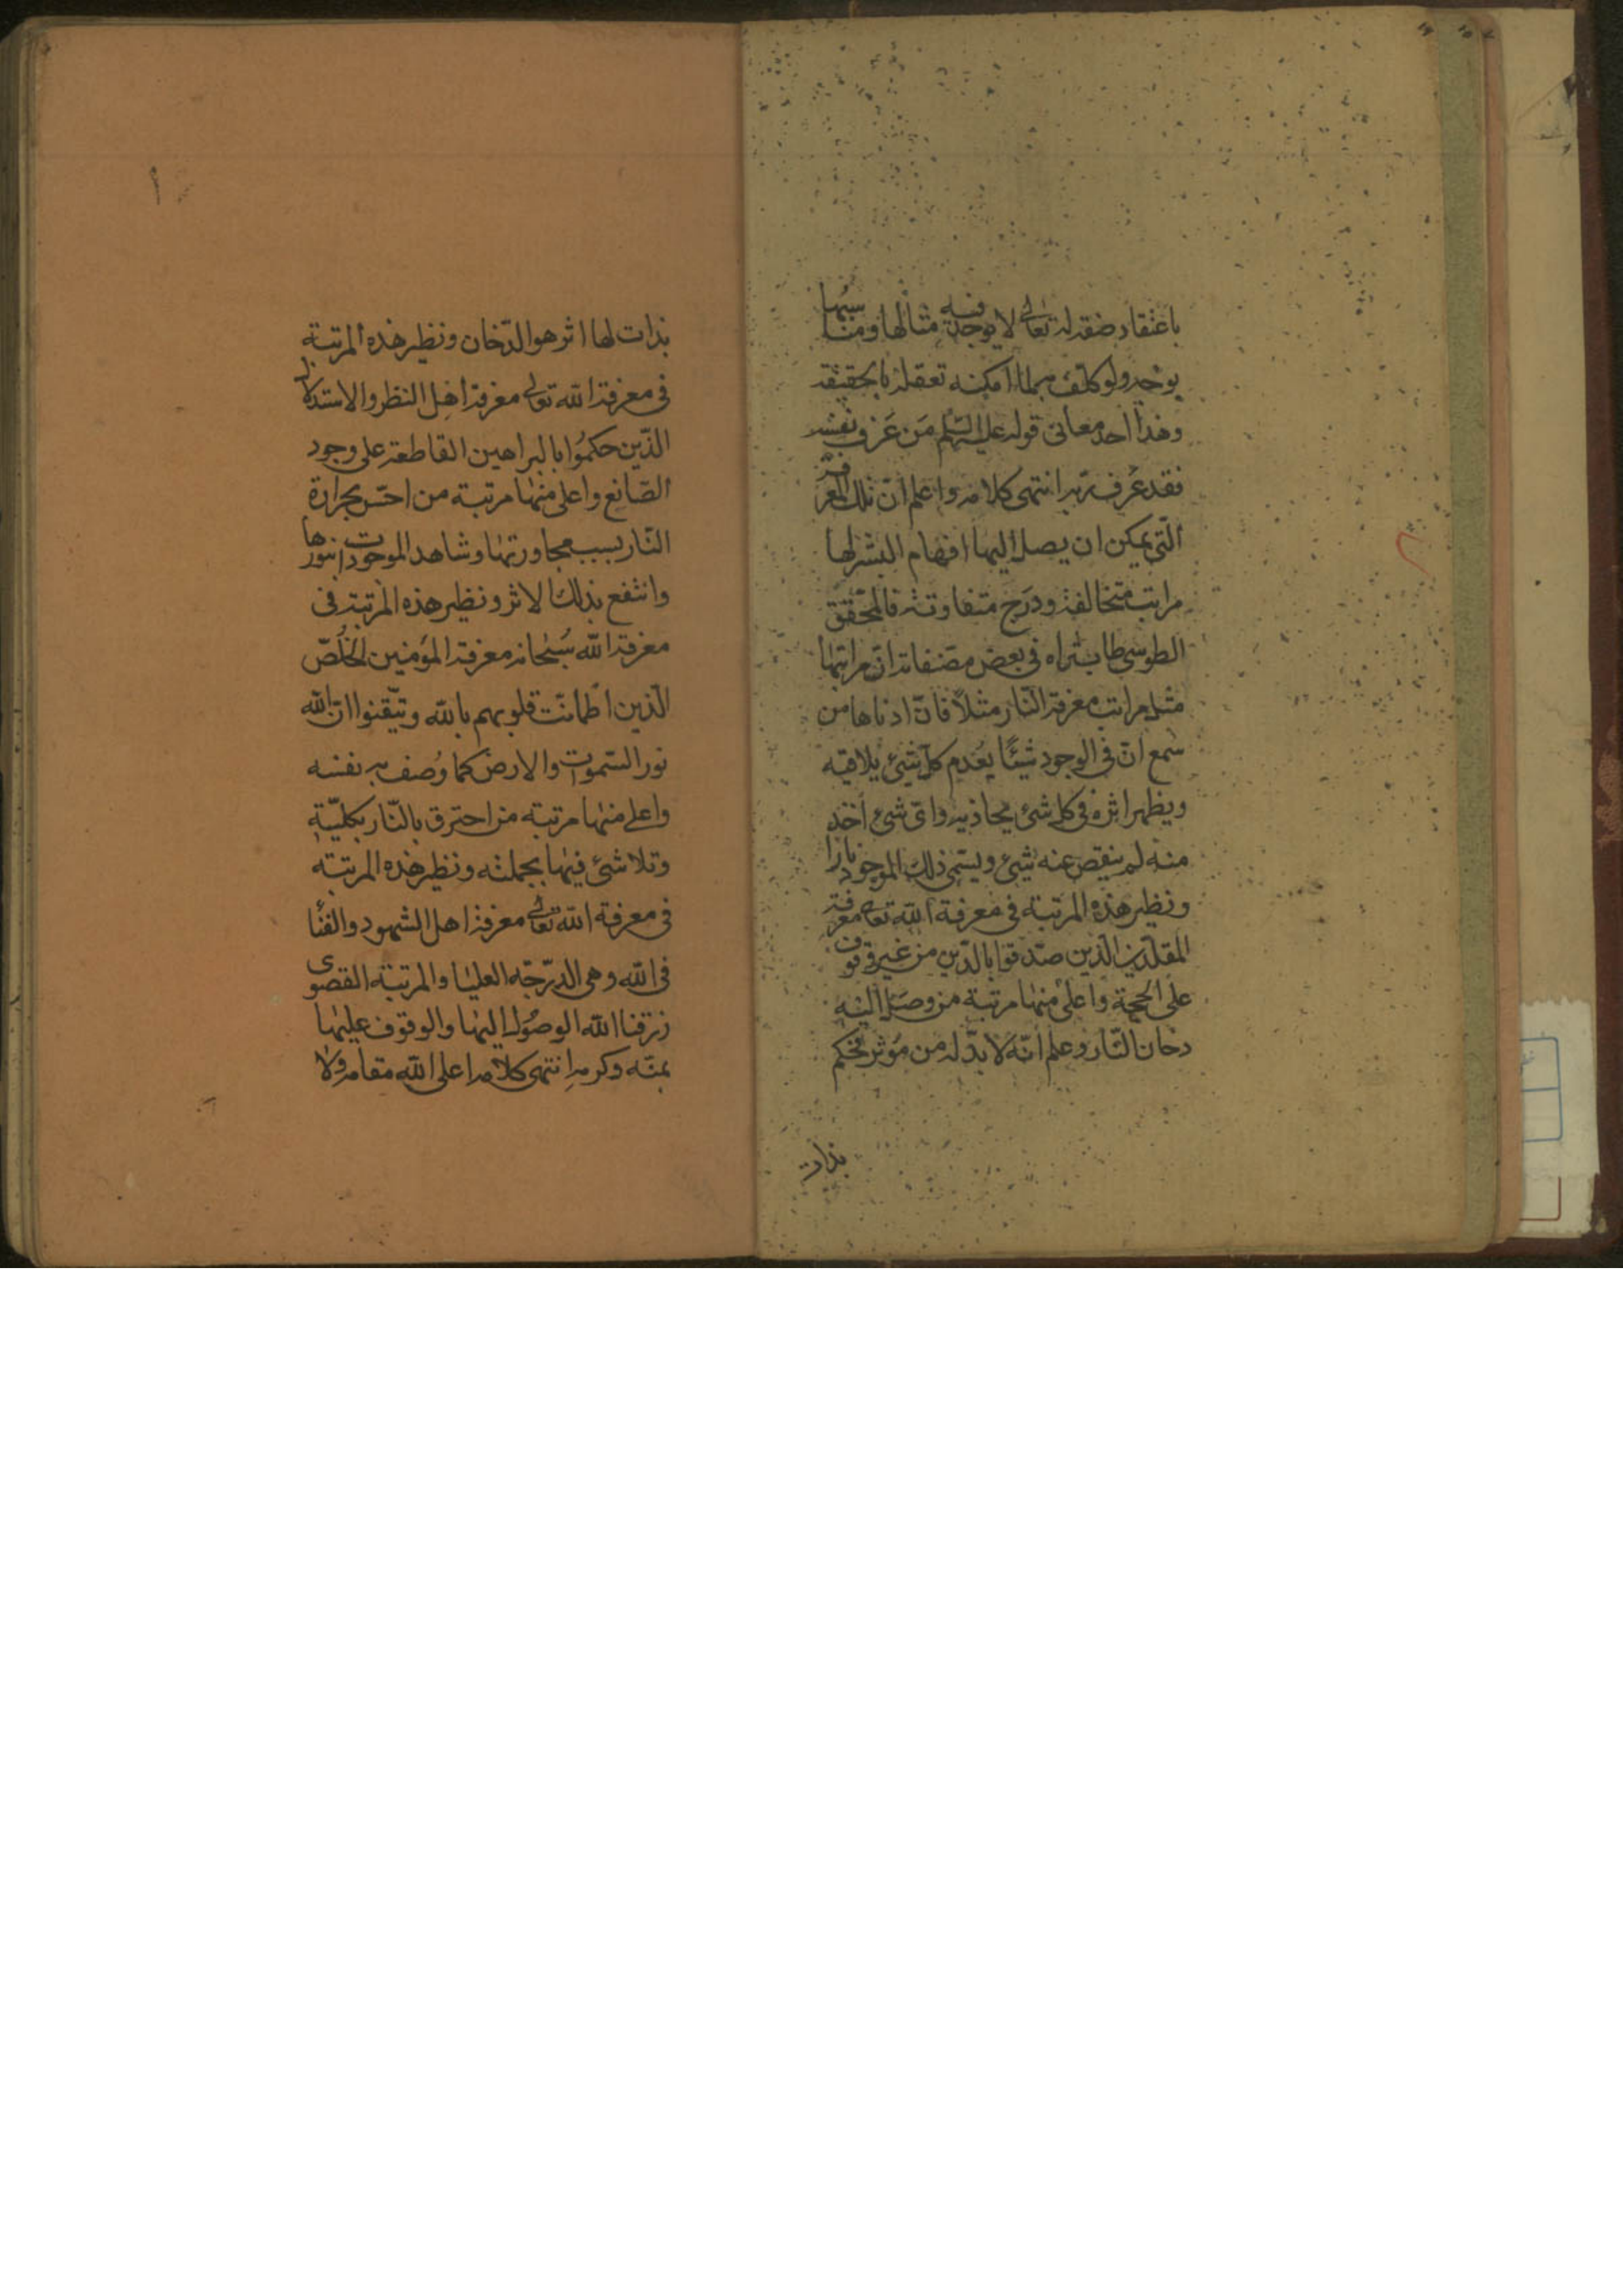 باعتقاد صفة له تعالى لا يوجد فيه مثالها ومناسبها
بوجه ولو كلّف بها لما امكنه تعقله بالحقيقة
وهذا احد معانى قوله عليه السّلم مَن عَرف نفسه
فقد عَرف ربّه انتهى كلامه واعلم انّ تلك المعرفة
الّتى يمكن ان يصل اليها افهام البشر لها
مراتب متخالفة ودَرج متفاوتة فالمحقّق
الطوسى طاب ثراه فى بعض مصنفاته انّ مراتبها
مثل مراتب معرفة النّار مثلاً فانّ ادناها من
سَمع انّ فى الوجود شيئًا يُعدم كلّ شئ يلاقيه
ويظهر اثره فى كل شئ يحاذيه واىّ شئ اُخذ
منه لم ينقص عنه شئ ويسمّى ذلك الموجود نارا
ونظير هذه المرتبة فى معرفة الله تعالى معرفة
المقلّدين الّذين صدّقوا بالدّين من غير وقوف
على الحجة واعلى منها مرتبة من وصَل اليه
دخان النّار وعلم انّه لا بدّ له من مؤثر فحكم
بذات
بذات لها اثر هو الدّخان ونظير هذه المرتبة
فى معرفة الله تعالى معرفة اهل النظر والاستدلال
الّذين حكمُوا بالبراهين القاطعة على وجود
الصّانع واعلى منها مرتبة من احسّ بحرارة
النّار بسبب مجاورتها وشاهد الموجودات بنورها
وانتفع بذلك الاثر ونظير هذه المرتبة فى
معرفة الله سُبْحانه معرفة المؤمنين الخُلّص
الّذين اطمأنّت قلوبهم بالله وتيّقنوا انّ الله
نور السّموات والارض كما وُصف به نفسه
واعلى منها مرتبة من احترق بالنّار بكليّته
وتلاشئ فيها بجملته ونظير هذه المرتبة
فى معرفة الله تعالى معرفة اهل الشهود والفنا
فى الله وهى الدرّجة العليا والمرتبة القصوى
رزقنا الله الوصُول اليها والوقوف عليها
بمنّه وكرمه انتهى كلامه اعلى الله مقامه ولا